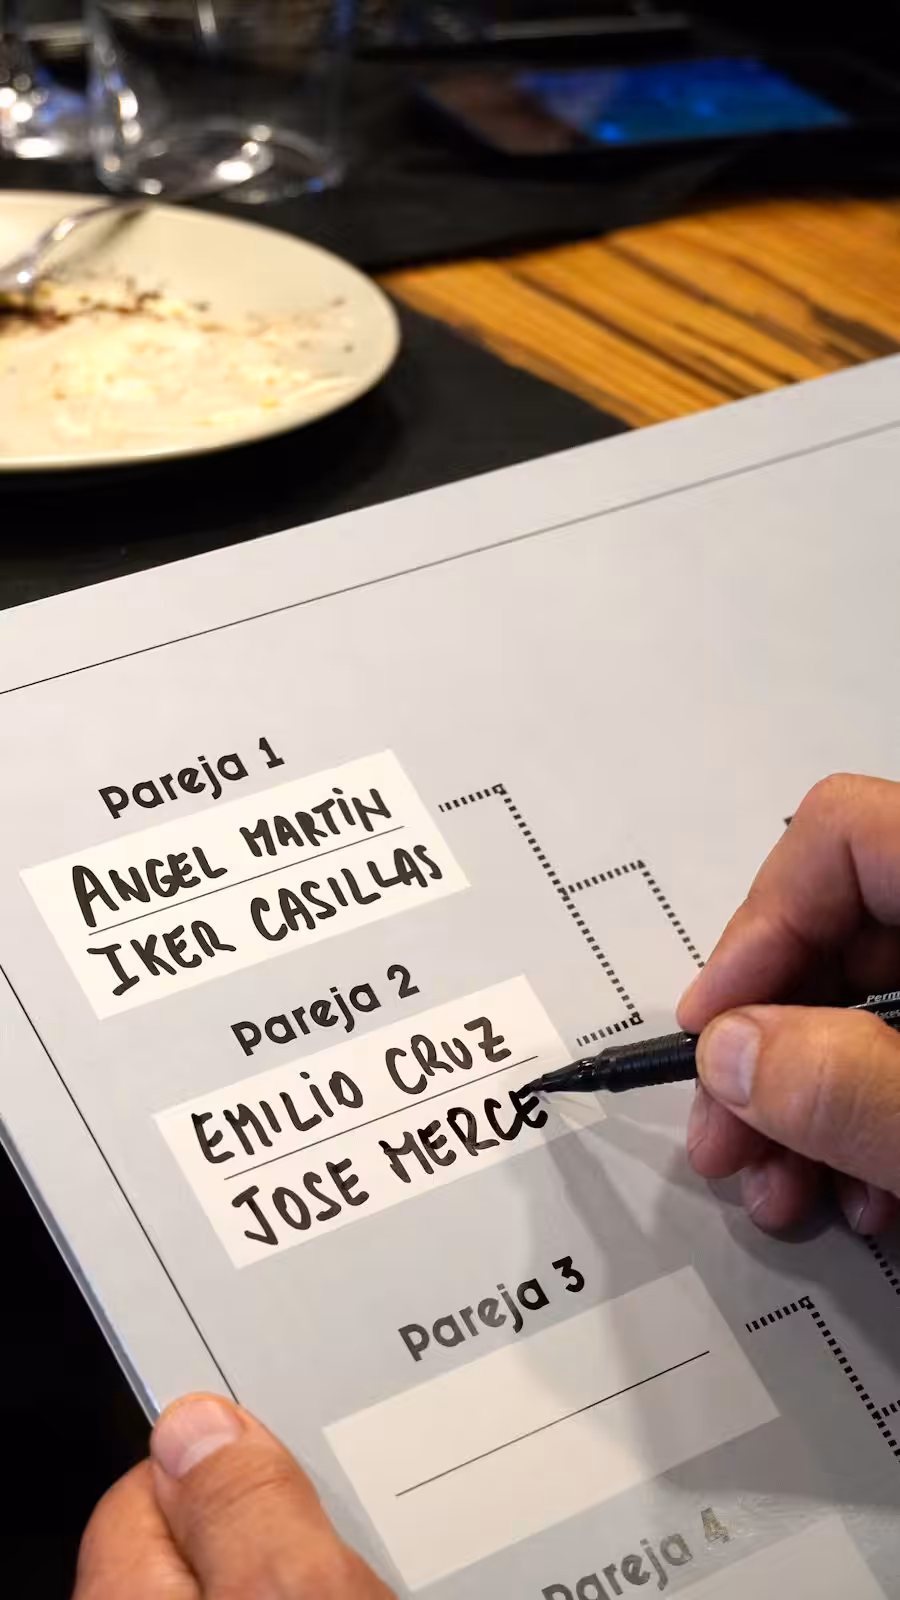 Pareja 1
ANGEL MARTiN
IKER CASILLAS
Pareja 2
EMILiO CRUZ
JOSE MERCE
Pareja 3
Pareja 4